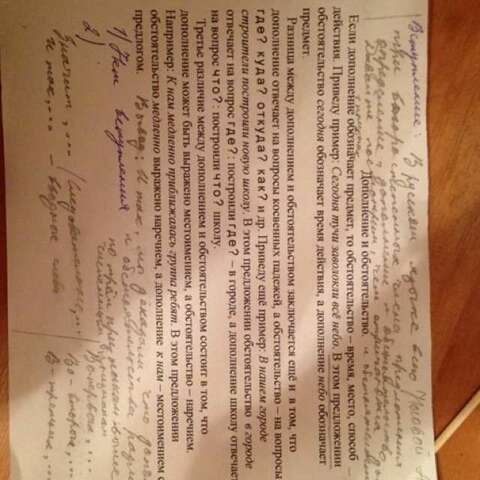 Вступление: В русском языке есть
второстепенных члена предложения
определение, дополнение и обстоятельство
Дополнение и обстоятельство
Если дополнение обозначает предмет, то обстоятельство – время, место, способ
действия. Приведу пример: Сегодня тучи заволокли всё небо. В этом предложении
обстоятельство сегодня обозначает время действия, а дополнение небо обозначает
предмет.
Разница между дополнением и обстоятельством заключается ещё и в том, что
дополнение отвечает на вопросы косвенных падежей, а обстоятельство – на вопросы
где? куда? откуда? как? и др. Приведу ещё пример: В нашем городе
строители построили новую школу. В этом предложении обстоятельство в городе
отвечает на вопрос где?: построили где? – в городе, а дополнение школу отвечает
на вопрос что?: построили что? школу.
Третье различие между дополнением и обстоятельством состоит в том, что
дополнение может быть выражено местоимением, а обстоятельство – наречием.
Например: К нам медленно приближалась группа ребят. В этом предложении
обстоятельство медленно выражено наречием, а дополнение к нам – местоимением с
предлогом.
1) Нет вступления
Вывод: Итак, мы доказали, что
2)
Значит, ... Следовательно, ... Во-первых, ...
Итак, ... - вводные слова Во-вторых, ...
В-третьих, ...